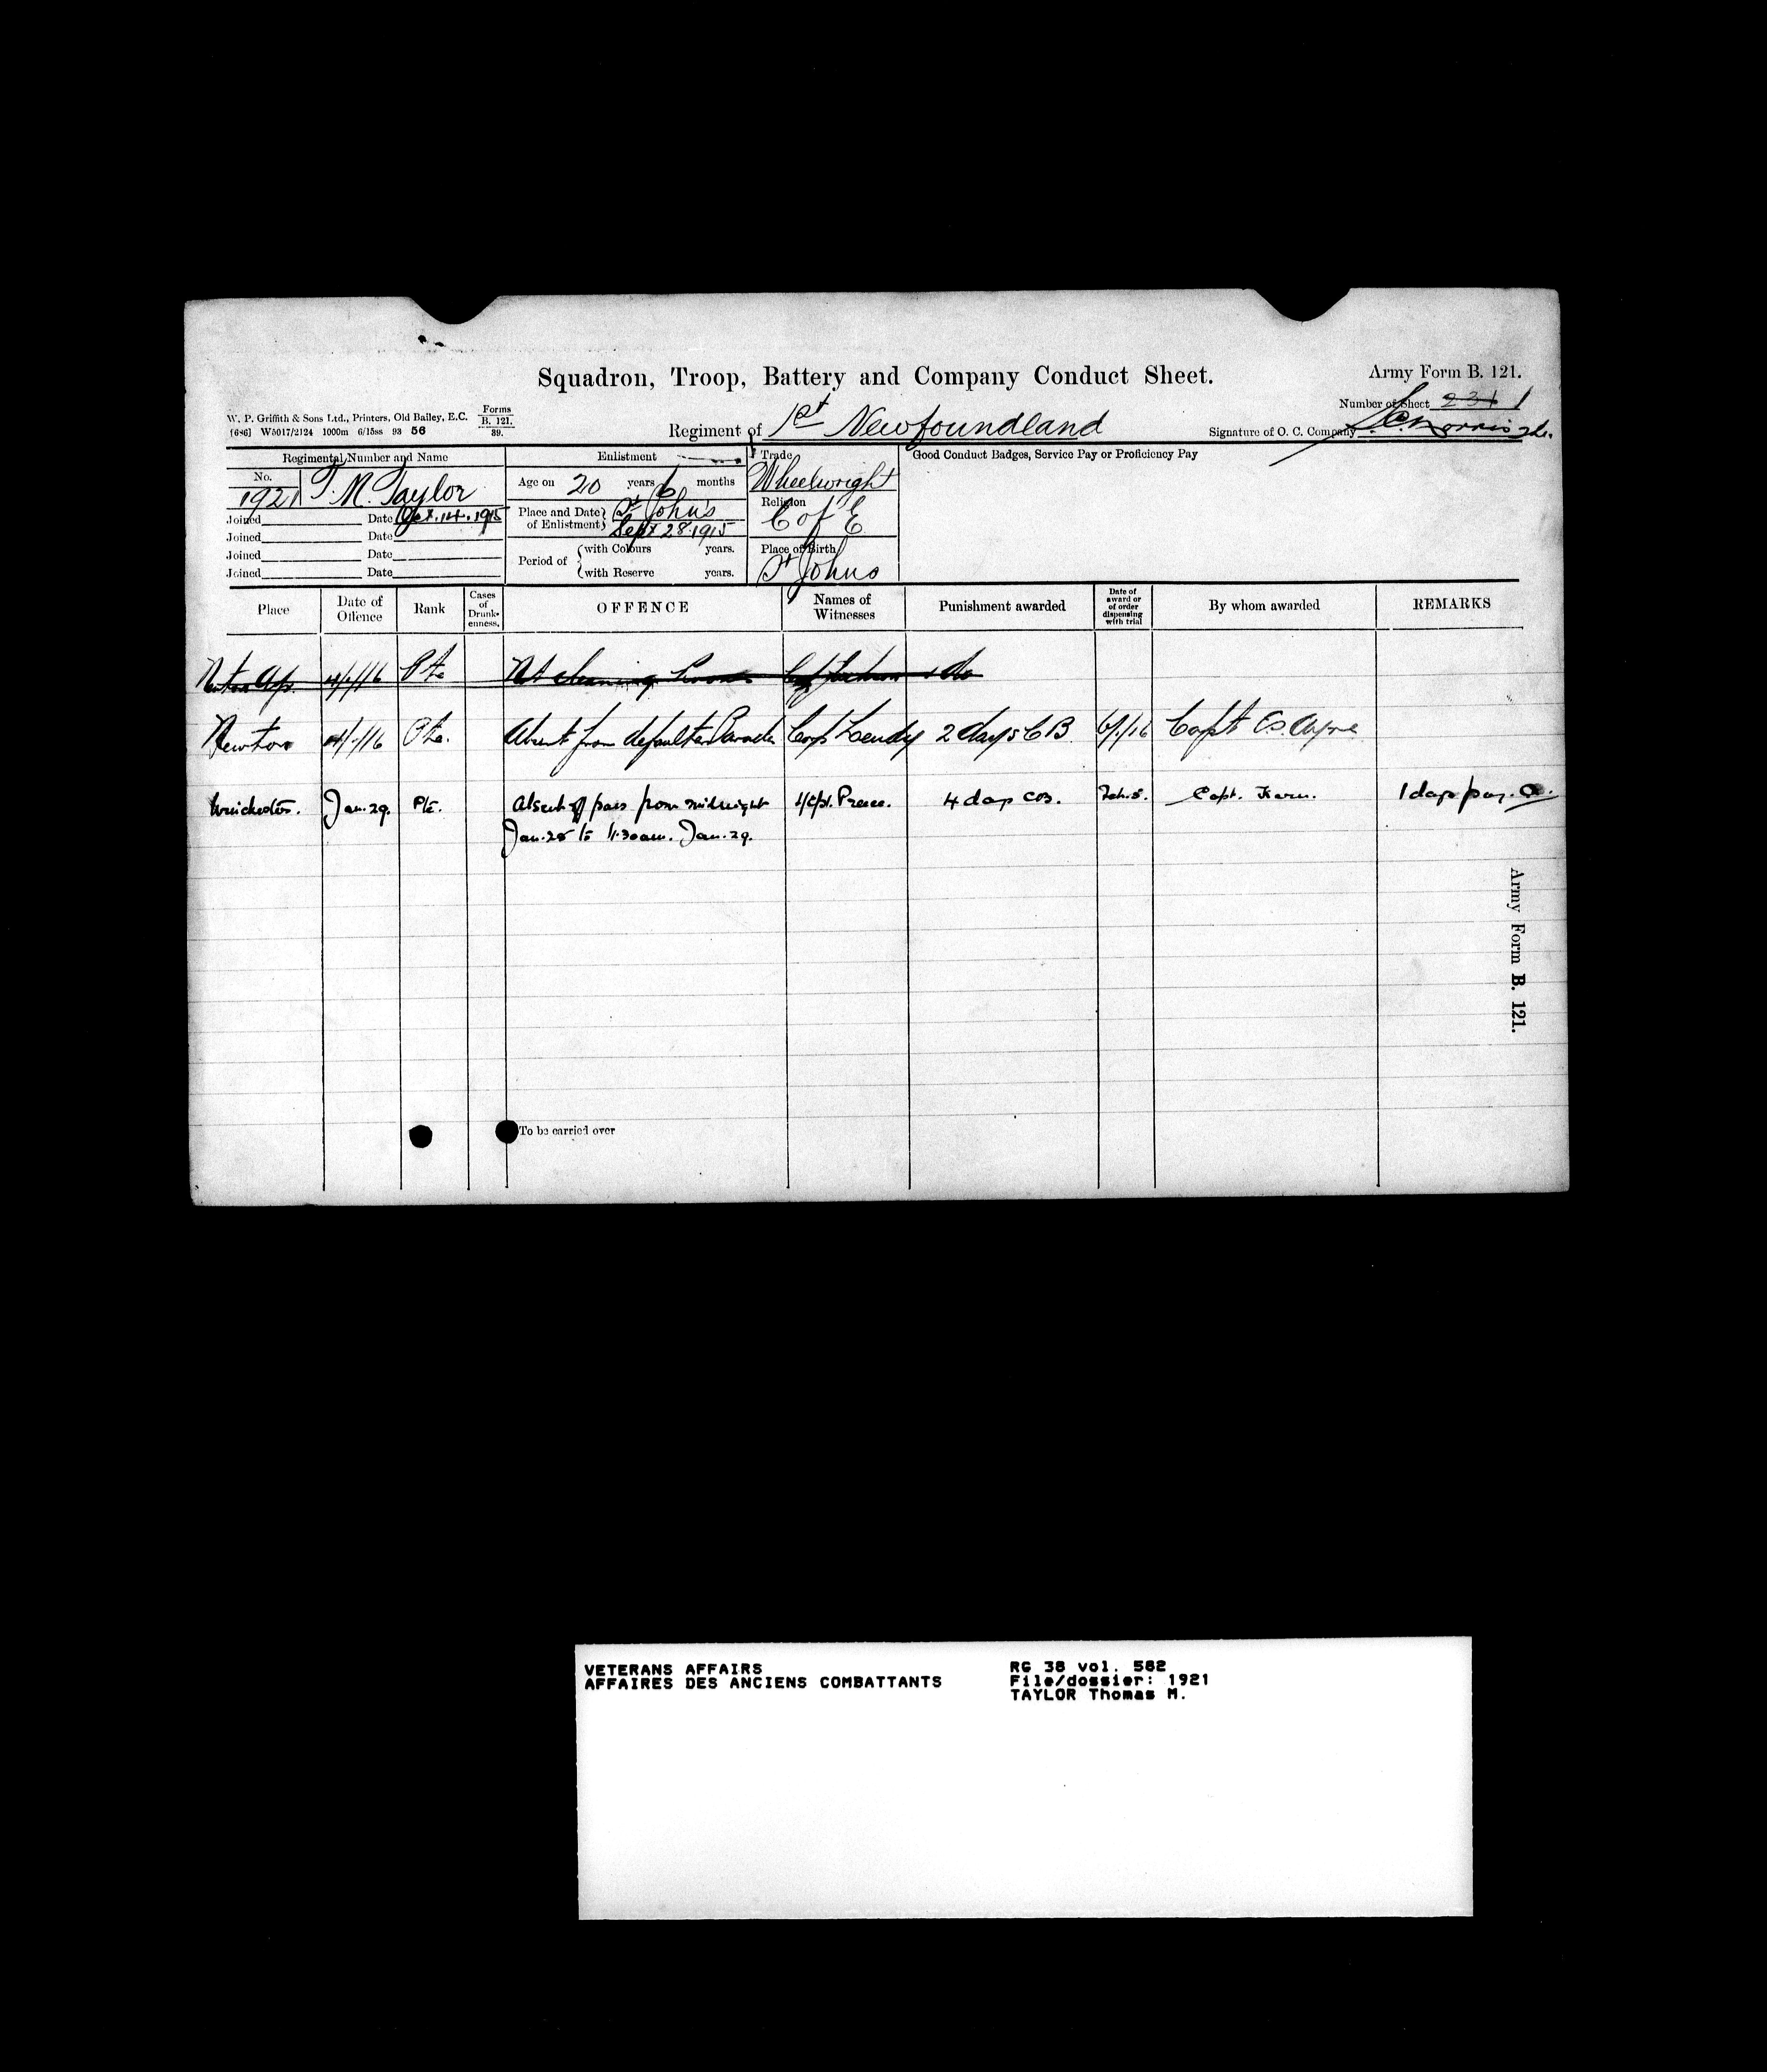 Squadron, Troop, Battery and Company Conduct Sheet.
Army Form B. 121.
Number of Sheet 231 1
W. P. Griffith & Sons Ltd., Printers, Old Bailey, E.C. Forms B. 121. 39.
[686] W5017/2124 1000m 6/15ss 93 56
Regiment of 1st Newfoundland
Signature of O. C. Company
Regimental Number and Name
No. 1921 T. M. Taylor
Joined Date Oct. 14. 1915
Joined Date
Joined Date
Joined Date
Enlistment
Age on 20 years 6 months
Place and Date of Enlistment St Johns
Sept 28. 1915
Period of with Colours years.
with Reserve years.
Trade
Wheelwright
Religion
C of E
Place of Birth
St Johns
Good Conduct Badges, Service Pay or Proficiency Pay
Place Date of Offence Rank Cases of Drunkenness. OFFENCE Names of Witnesses Punishment awarded Date of award or of order dispensing with trial By whom awarded REMARKS
Pte Not cleaning
Newton 4/1/16 Pte. Absent from defaulters Parade Corp 2 days CB 6/1/16 Capt Ayre
Winchester. Jan. 29. Pte. Absent off pass from midnight L/Cpl. Preece. 4 days CB. Feb. 5. Capt. 1 days pay.
Jan. 28 to 11.30am. Jan. 29.
Army Form B. 121.
To be carried over
VETERANS AFFAIRS
AFFAIRES DES ANCIENS COMBATTANTS
RG 38 vol. 562
File/dossier: 1921
TAYLOR Thomas M.